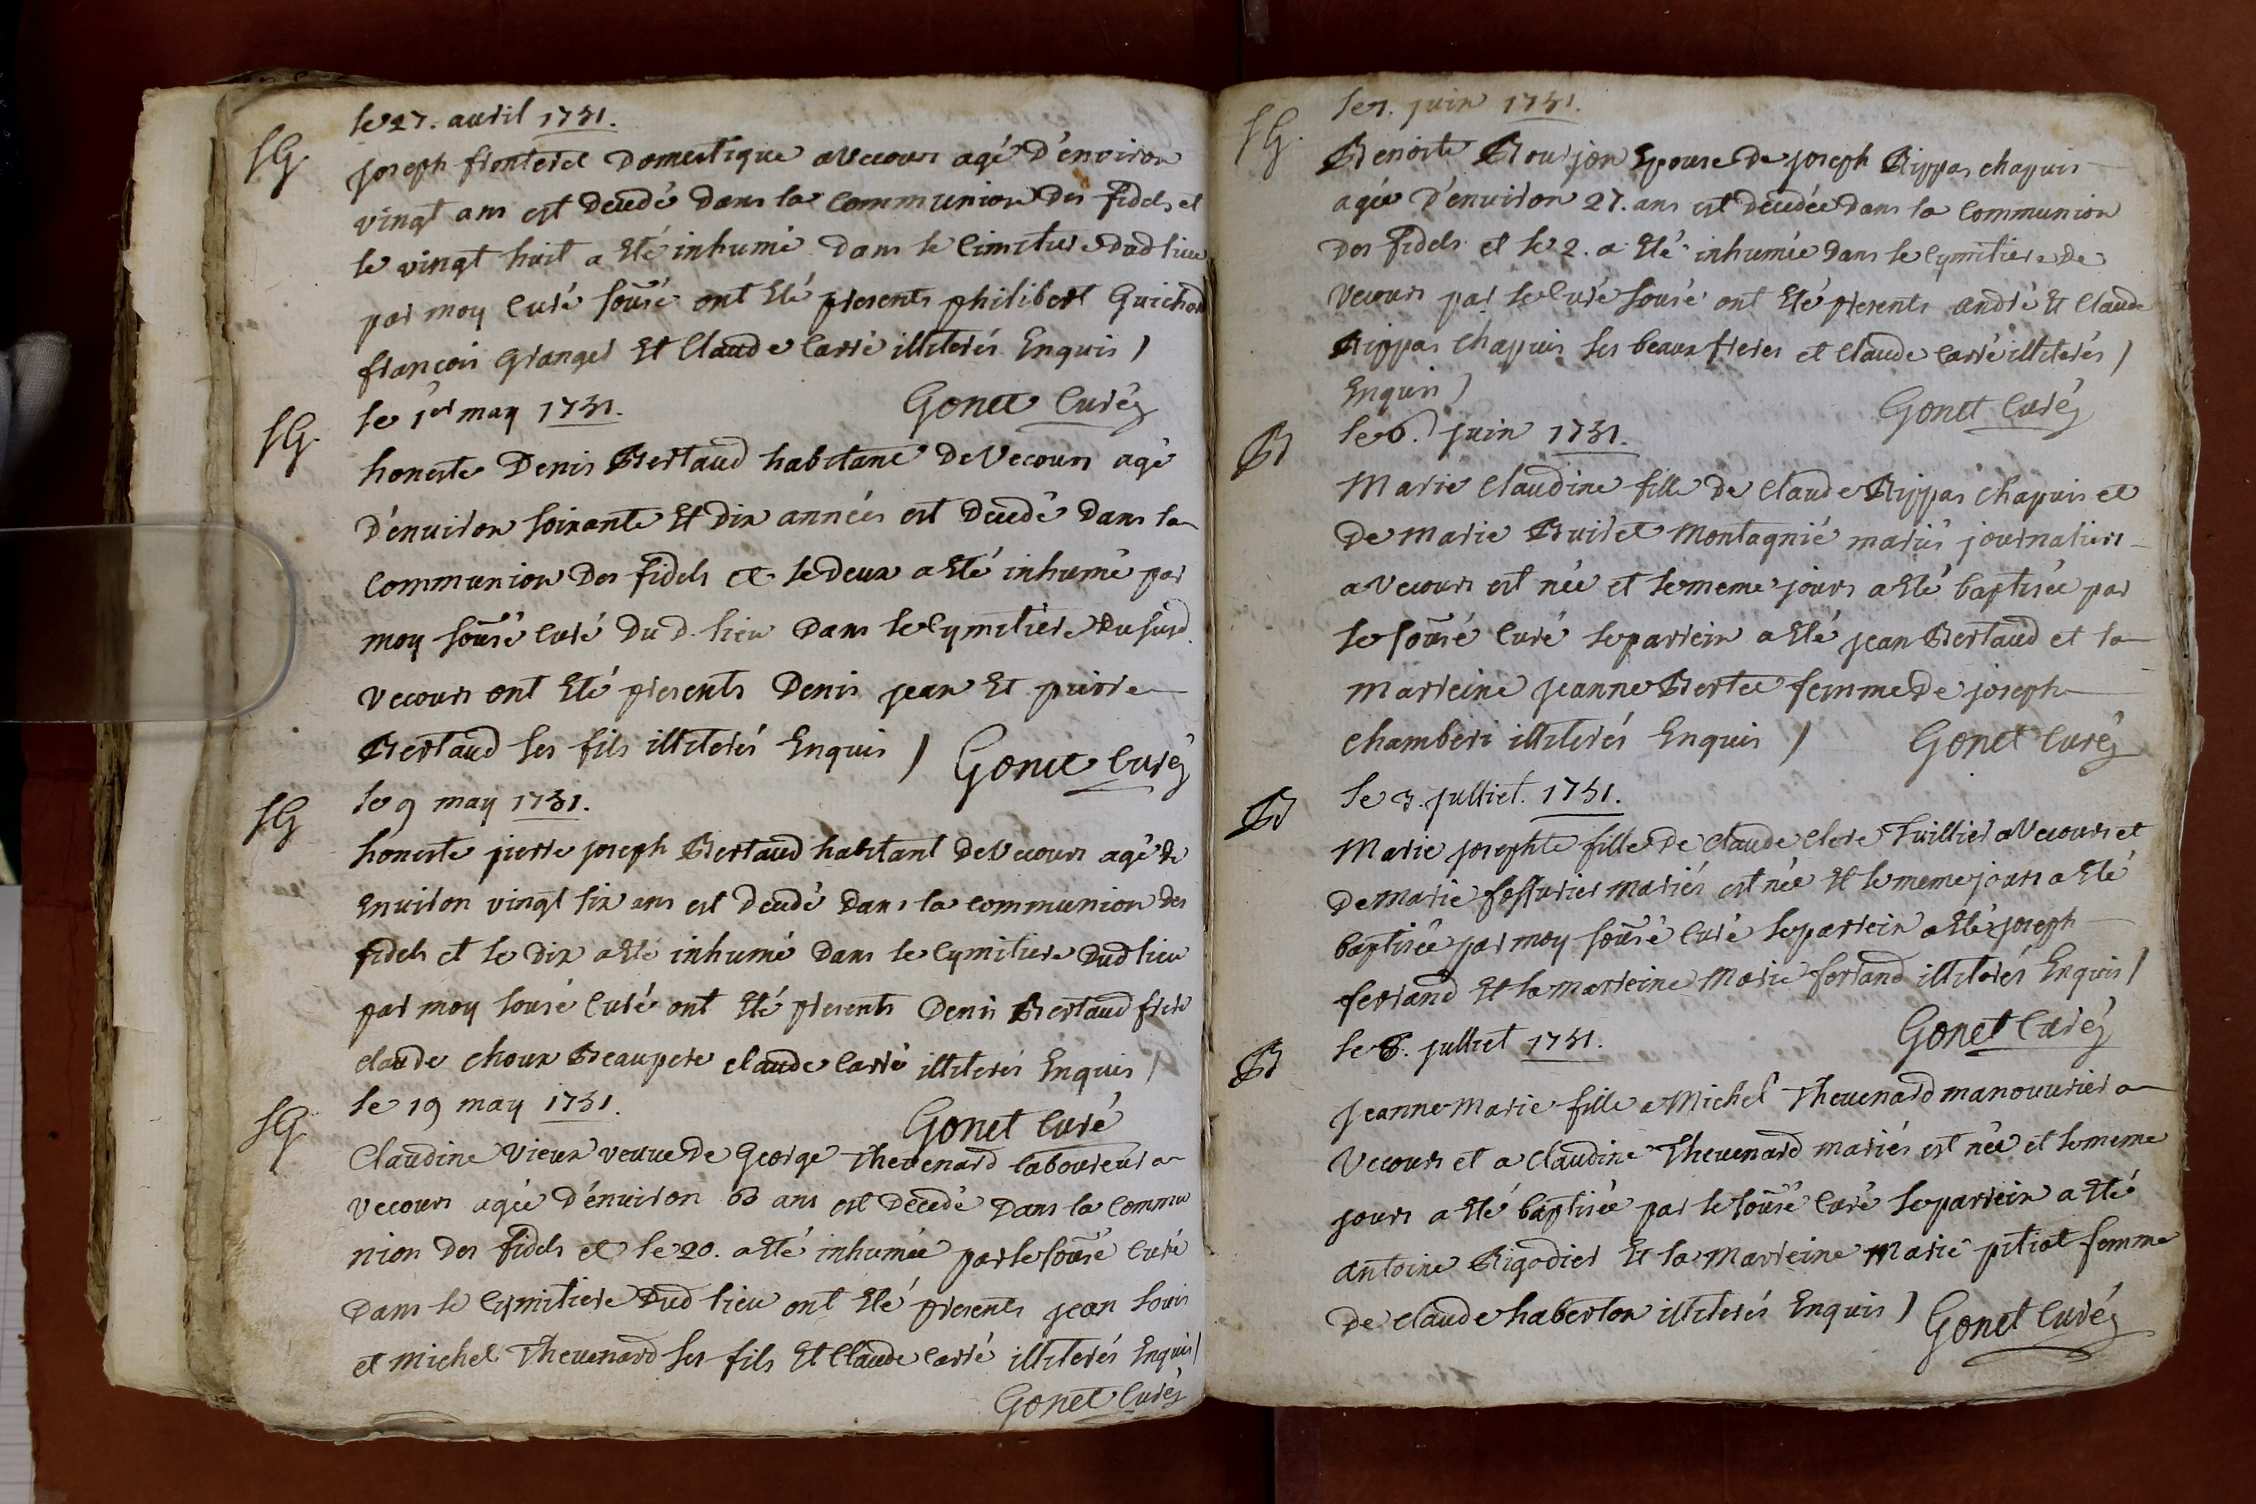 le 27. avril 1731.
SG
joseph fronteret Domestique a Vecours agé D'environ
vingt ans est Decedé Dans la communion Des fidels et
le vingt huit a eté inhumé Dans le Cimitiere Dud lieu
par moy Curé sousé ont eté presents philibert Guichard
françois Granger Et Claude Carré illiterés Enquis /
Gonet Curé
SG
le 1er may 1731.
honeste Denis Bertaud habitant De Vecours agé
D'environ soixante Et Dix années est Decedé Dans la
Communion Des fidels et le Deux a eté inhumé par
moy sousé Curé Du D. lieu Dans le Cymitiere Du susd.
Vecours ont eté presents Denis jean Et pierre
Bertaud ses fils illiterés Enquis / Gonet Curé
SG
le 9 may 1731.
honeste pierre joseph Bertaud habitant De Vecours agé de
Environ vingt six ans est Decedé Dans la communion des
fidels et le Dix a eté inhumé Dans le Cymitiere Dud lieu
par moy sousé Curé ont eté presents Denis Bertaud frere
claude choux Beaupere claude Carré illiterés Enquis /
Gonet Curé
SG
le 19 may 1731.
Claudine Vieux veuve De George Thevenard laboureur a
Vecours agée D'environ 63 ans est Decedé Dans la Commu
nion Des fidels et le 20. a eté inhumée par le sousé Curé
Dans le Cymitiere Dud lieu ont eté presents jean Louis
et Michel Thevenard ses fils Et Claude Carré illiterés Enquis /
Gonet Curé
le 1. juin 1731.
SG.
Benoite Bourjon Epouse De joseph Rippas chapuis
agée D'environ 27. ans est decedée Dans la Communion
Des fidels et le 2. a eté inhumée Dans le Cymitiere De
Vecours par le Curé sousé ont eté presents andré Et Claude
Rippas chapuis ses beaux freres et Claude Carré illiterés /
Enquis /
Gonet Curé
B
le 6. juin 1731.
Marie Claudine fille De Claude Rippas chapuis et
De Marie Buiret Montagnié mariés journaliers
a Vecours est née et le meme jours a eté baptisée par
le sousé Curé le parrein a eté jean Bertaud et la
Marreine jeanne Bertet femme De joseph
chamberi illiterés Enquis / Gonet Curé
B
le 3. julliet. 1731.
Marie josephte fille De Claude Clere Tuillier a Vecours et
De Marie fossurier mariés est née Et le meme jours a eté
baptisée par moy sousé Curé le parrein a eté joseph
ferrand Et la marreine Marie ferrand illiterés Enquis /
Gonet Curé
B
le 8. julliet 1731.
Jeanne Marie fille a Michel Thevenard manouvrier a
Vecours et a Claudine Thevenard mariés est née et le meme
jours a eté baptisée par le sousé Curé le parrein a eté
antoine Rigodier Et la Marreine Marie pitiot femme
De Claude haberton illiterés Enquis / Gonet Curé